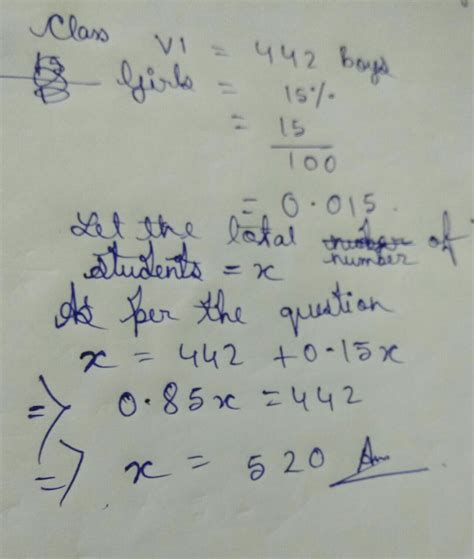 Class VI = 442 Boys
Girls = 15%
= 15
100
= 0.015.
Let the total number of
students = x
As per the question
x = 442 + 0.15x
=> 0.85x = 442
=> x = 520 Ans